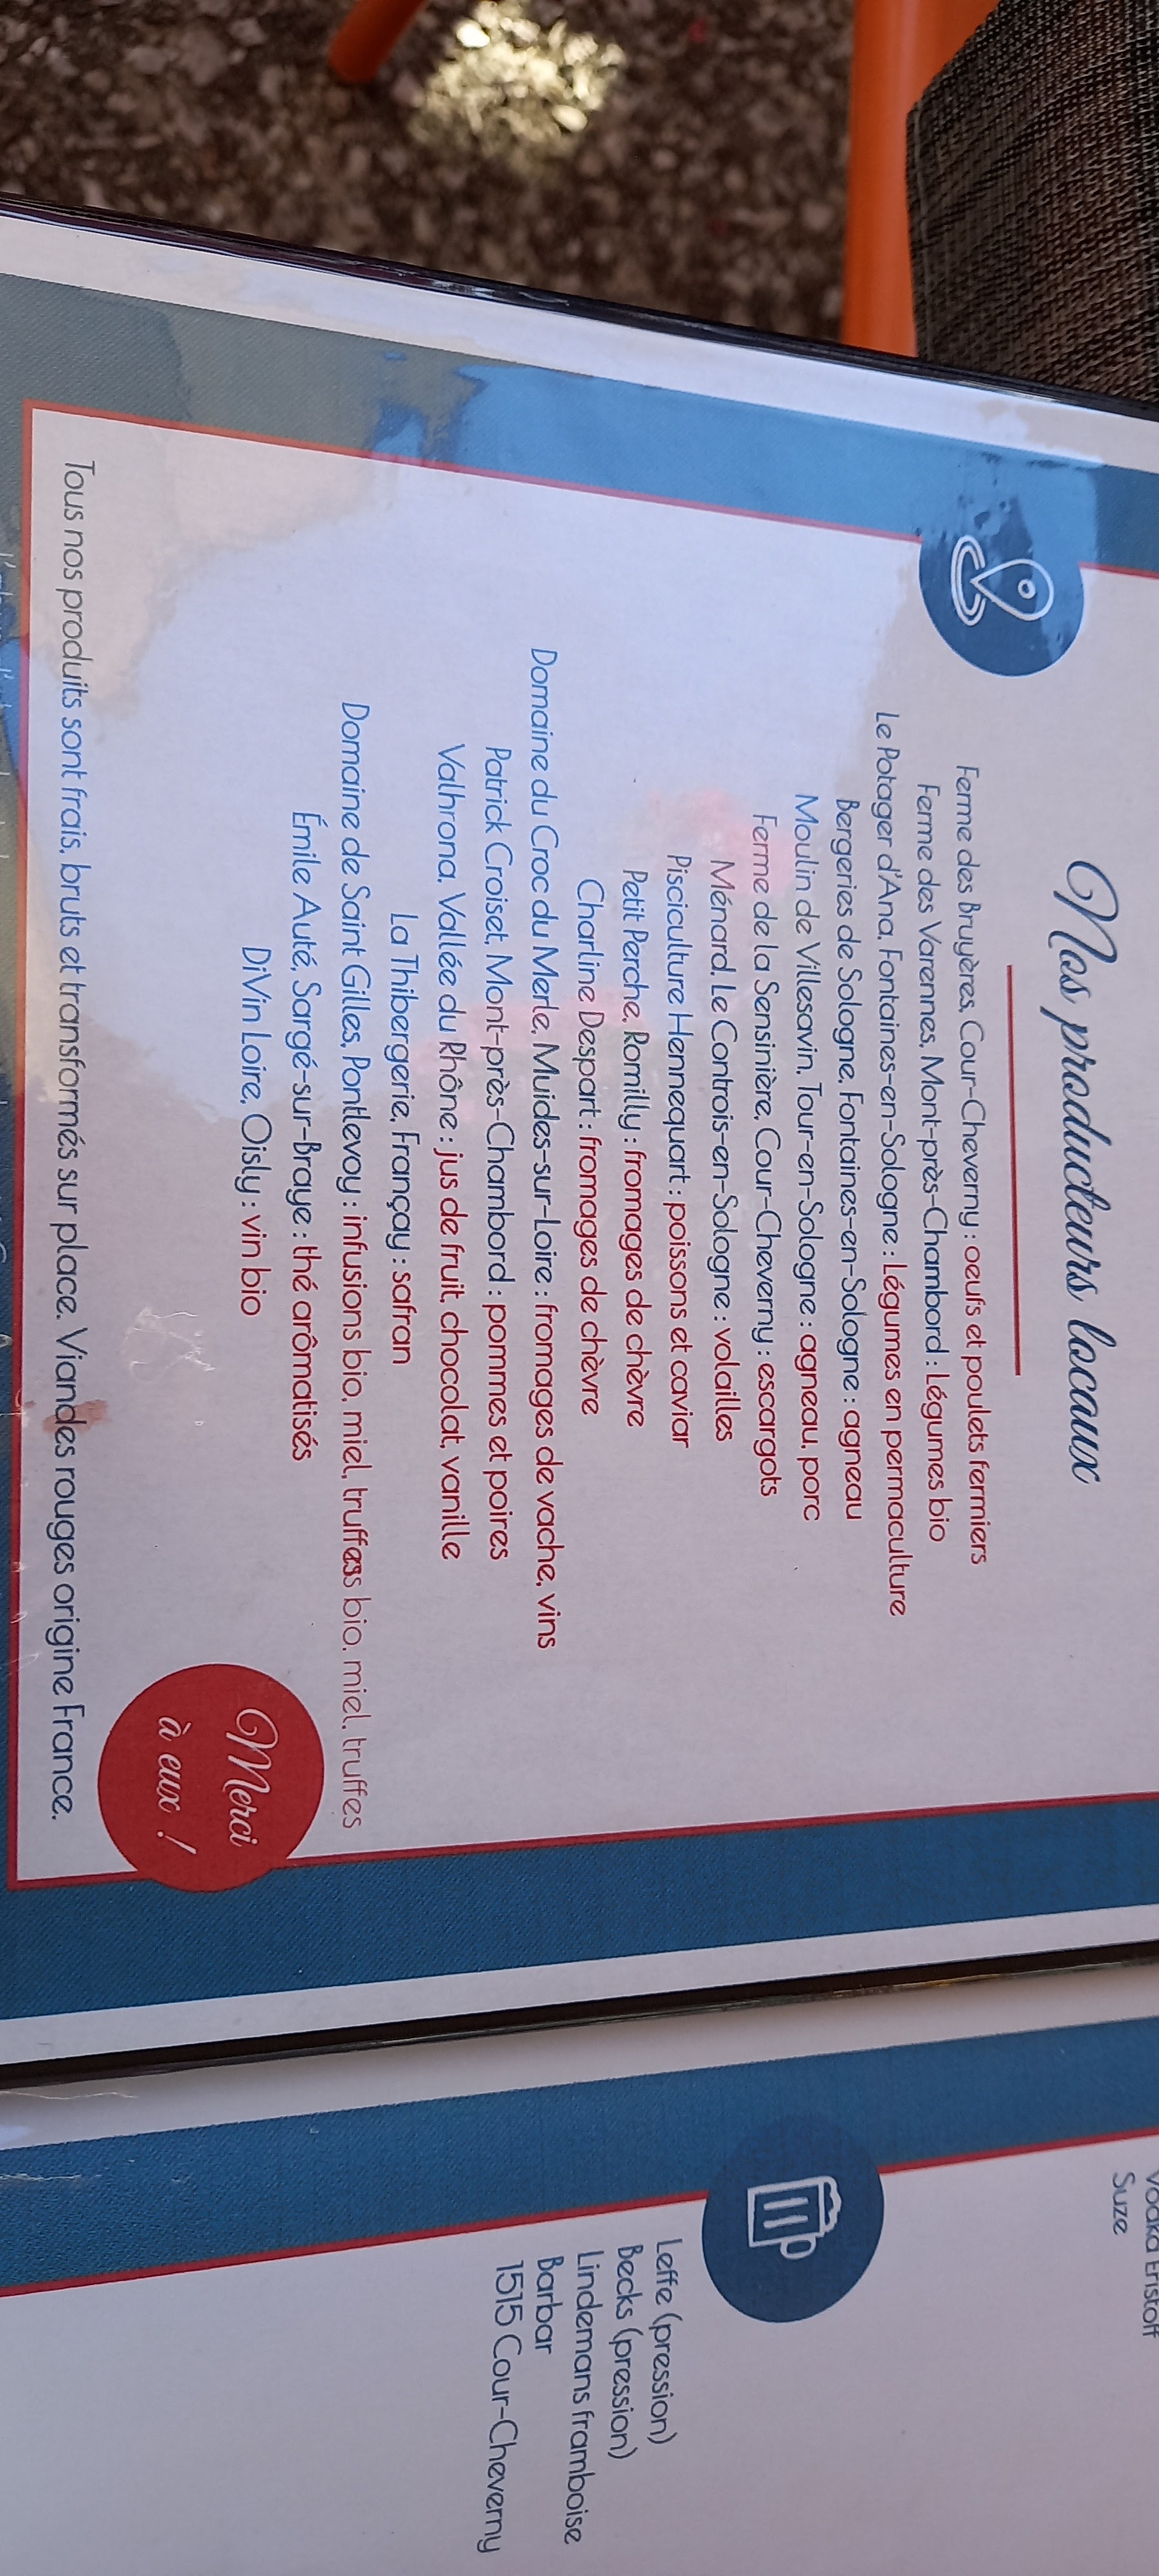 Nos producteurs locaux
Ferme des Bruyères, Cour-Cheverny : oeufs et poulets fermiers
Ferme des Varennes, Mont-près-Chambord : Légumes bio
Le Potager d'Ana, Fontaines-en-Sologne : Légumes en permaculture
Bergeries de Sologne, Fontaines-en-Sologne : agneau
Moulin de Villesavin, Tour-en-Sologne : agneau, porc
Ferme de la Sensinière, Cour-Cheverny : escargots
Ménard, Le Controis-en-Sologne : volailles
Pisciculture Hennequart : poissons et caviar
Petit Perche, Romilly : fromages de chèvre
Charline Despart : fromages de chèvre
Domaine du Croc du Merle, Muides-sur-Loire : fromages de vache, vins
Patrick Croiset, Mont-près-Chambord : pommes et poires
Valhrona, Vallée du Rhône : jus de fruit, chocolat, vanille
La Thibergerie, Françay : safran
Domaine de Saint Gilles, Pontlevoy : infusions bio, miel, truffess bio, miel, truffes
Émile Auté, Sargé-sur-Braye : thé arômatisés
DiVin Loire, Oisly : vin bio
Merci
à eux !
Tous nos produits sont frais, bruts et transformés sur place. Viandes rouges origine France.
Vodka Eristoff
Suze
Leffe (pression)
Becks (pression)
Lindemans framboise
Barbar
1515 Cour-Cheverny